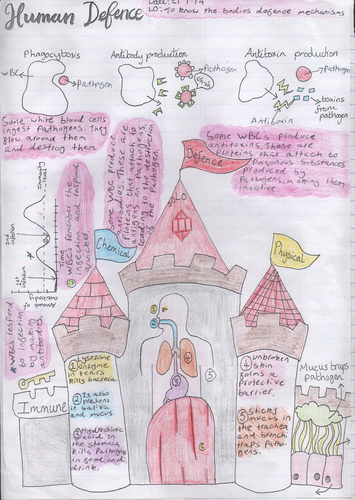 Human Defence
LO: To know the bodies defence mechanisms
Phagocytosis
Antibody production
Antitoxin production
WBC
Pathogen
Pathogen
Pathogen
toxins from
pathogen
Antitoxin
Some white blood cells
ingest pathogens. They
flow around them
and destroy them
Some WBC's produce
antibodies. These are
proteins that attach to
Pathogens
leads to the destruction
of the Pathogen
Some WBC's produce
antitoxins. These are
proteins that attach to
Poisonous substances
produced by
Pathogens, making them
inactive
Immunity
level
2nd
infection
1st
infection
Time
WBCs remember the
infection and respond
quicker
*WBCs respond
to infection
by making
antibodies
Defence
Chemical
Physical
YOLO
Immune
1 Lysozome
enzyme
in tears
Kills bacteria
2 Is also
present
in saliva
and mucus.
3 Hydrochloric
acid in
the stomach
Kills Pathogens
in food and
drink.
4 unbroken
skin
forms a
Protective
barrier.
5 sticky
mucus in
the trachea
and bronchi
traps Patho-
gens.
Mucus traps
pathogen
5